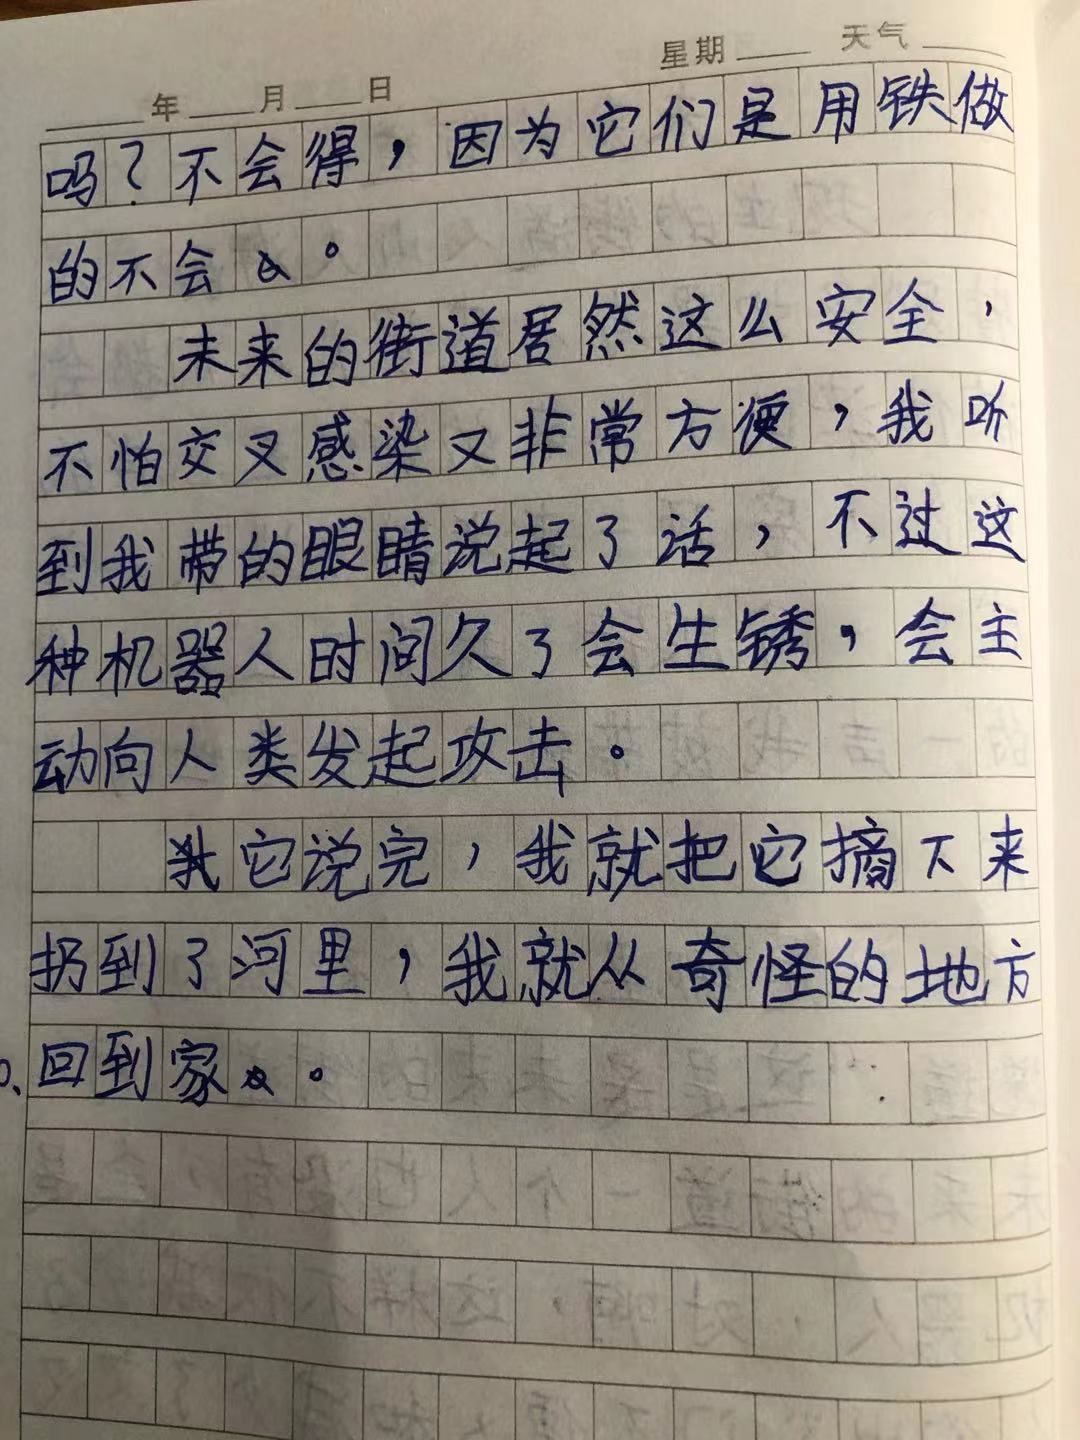 年 月 日 星期 天气
吗？不会得，因为它们是用铁做
的不会。
未来的街道居然这么安全，
不怕交叉感染又非常方便，我听
到我带的眼睛说起了话，不过这
种机器人时间久了会生锈，会主
动向人类发起攻击。
它说完，我就把它摘下来
扔到了河里，我就从奇怪的地方
回到家。